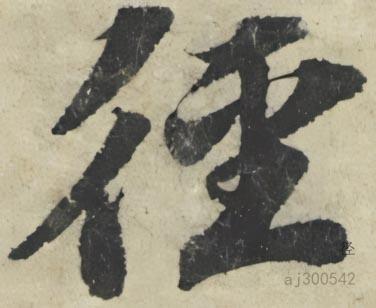 徑
径
aj300542